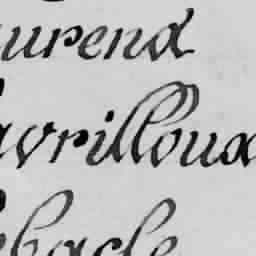 urend
avrilloux
ebacle